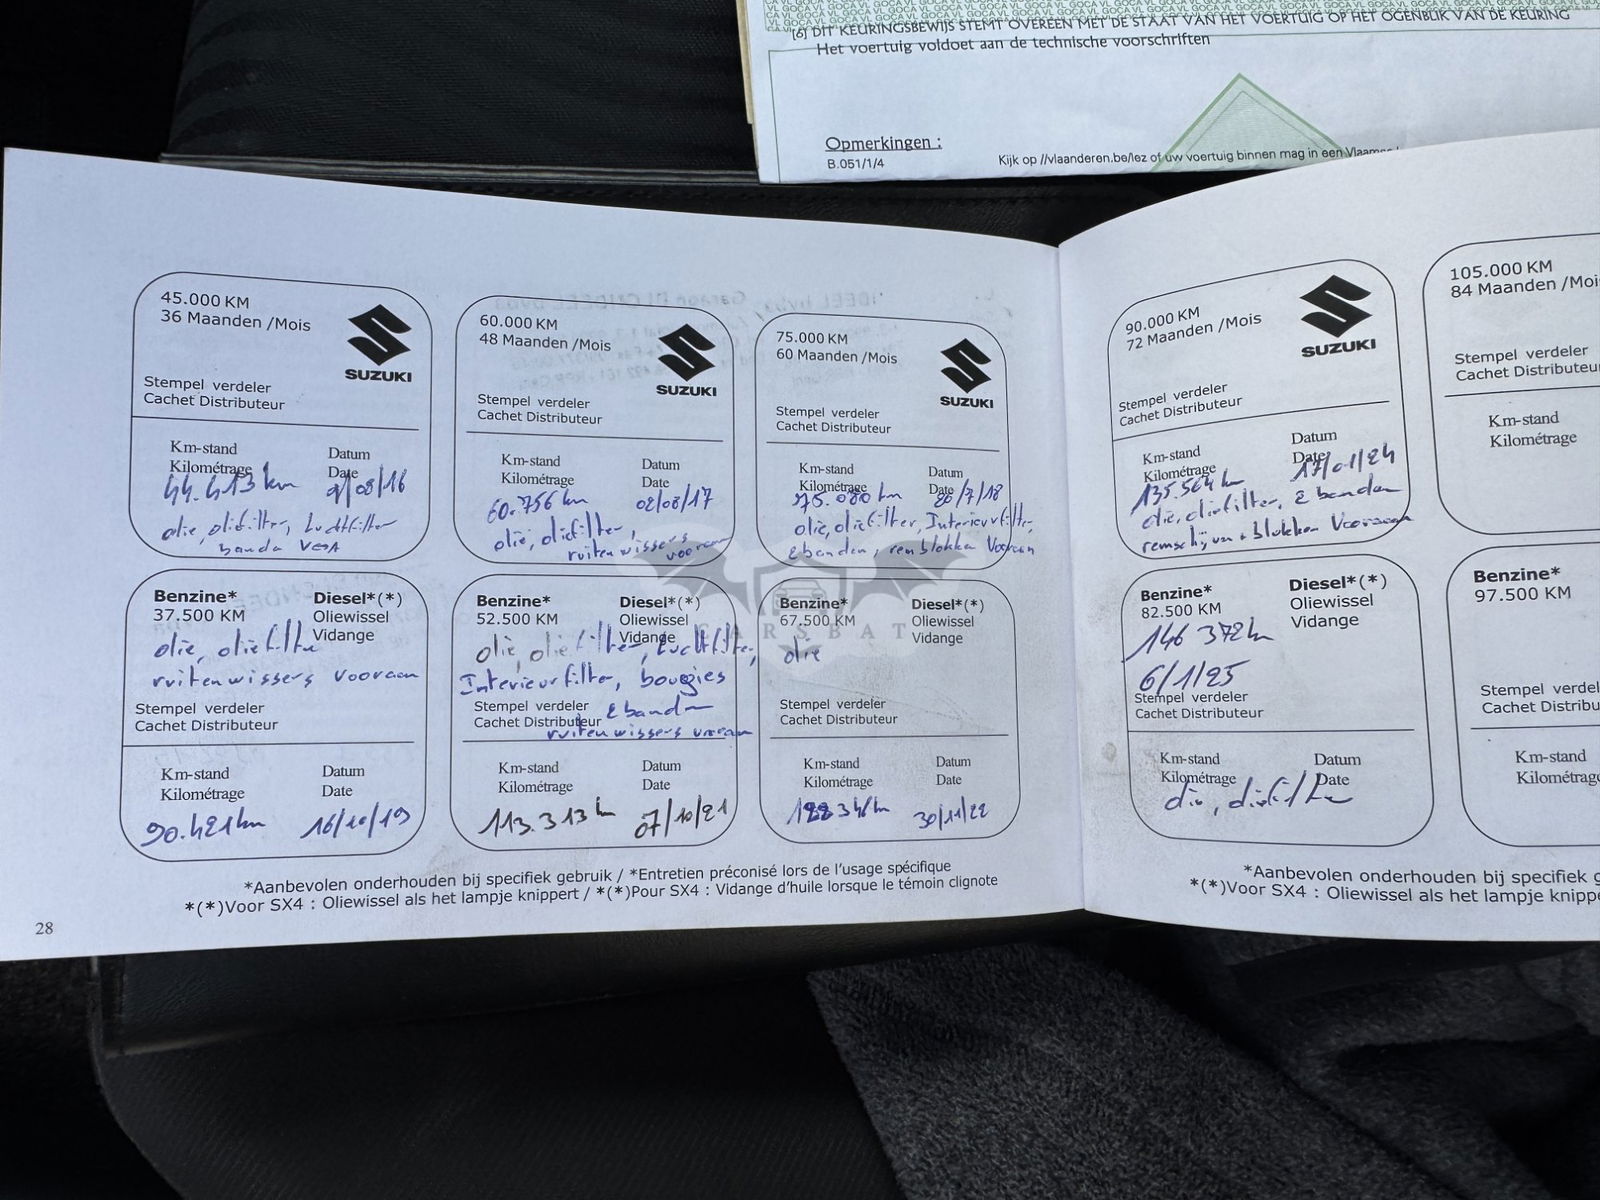 [6] DIT KEURINGSBEWIJS STEMT OVEREEN MET DE STAAT VAN HET VOERTUIG OP HET OGENBLIK VAN DE KEURING
Het voertuig voldoet aan de technische voorschriften
Opmerkingen :
B.051/1/4
Kijk op //vlaanderen.be/lez of uw voertuig binnen mag in een
45.000 KM
36 Maanden /Mois
SUZUKI
Stempel verdeler
Cachet Distributeur
Km-stand
Kilométrage
Datum
Date
44.413 km
/08/16
olie, oliefilter, luchtfilter
banden
60.000 KM
48 Maanden /Mois
SUZUKI
Stempel verdeler
Cachet Distributeur
Km-stand
Kilométrage
Datum
Date
60.756 km
02/08/17
olie, oliefilter,
ruitenwissers
vooraan
75.000 KM
60 Maanden /Mois
SUZUKI
Stempel verdeler
Cachet Distributeur
Km-stand
Kilométrage
Datum
Date
75.080 km
/7/18
olie, oliefilter, Interieurfilter,
2 banden, remblokken Vooraan
90.000 KM
72 Maanden /Mois
SUZUKI
Stempel verdeler
Cachet Distributeur
Km-stand
Kilométrage
Datum
Date
135.564 km
17/01/24
olie, oliefilter, 2 banden
remschijven + blokken Vooraan
105.000 KM
84 Maanden /Mois
Stempel verdeler
Cachet Distributeur
Km-stand
Kilométrage
Benzine*
37.500 KM
Diesel*(*)
Oliewissel
Vidange
olie, oliefilter
ruitenwissers vooraan
Stempel verdeler
Cachet Distributeur
Km-stand
Kilométrage
Datum
Date
90.421 km
16/10/19
Benzine*
52.500 KM
Diesel*(*)
Oliewissel
Vidange
olie, oliefilter, luchtfilter,
Interieurfilter, bougies
Stempel verdeler
Cachet Distributeur
2 banden
ruitenwissers vooraan
Km-stand
Kilométrage
Datum
Date
113.313 km
07/10/21
Benzine*
67.500 KM
Diesel*(*)
Oliewissel
Vidange
CARSBAT
olie
Stempel verdeler
Cachet Distributeur
Km-stand
Kilométrage
Datum
Date
30/11/22
Benzine*
82.500 KM
Diesel*(*)
Oliewissel
Vidange
146 372 km
6/1/25
Stempel verdeler
Cachet Distributeur
Km-stand
Kilométrage
Datum
Date
olie, oliefilter
Benzine*
97.500 KM
Stempel
Cachet
Km-stand
*Aanbevolen onderhouden bij specifiek gebruik / *Entretien préconisé lors de l'usage spécifique
*(*)Voor SX4 : Oliewissel als het lampje knippert / *(*)Pour SX4 : Vidange d'huile lorsque le témoin clignote
*Aanbevolen onderhouden bij specifiek
*(*)Voor SX4 : Oliewissel als het lampje
28